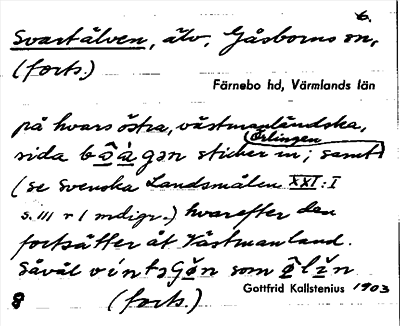 6.
Svartälven, älv, Gåsborns sn,
(forts.)
Färnebo hd, Värmlands län
på hvars östra, västmanländska,
Örlingen
sida sticker in; samt
(se Svenska Landsmålen XXI:1
s. 111 r 1 nedifr.) hvarefter den
fortsätter åt Västmanland.
Såväl som
Gottfrid Kallstenius 1903
8 (forts.)